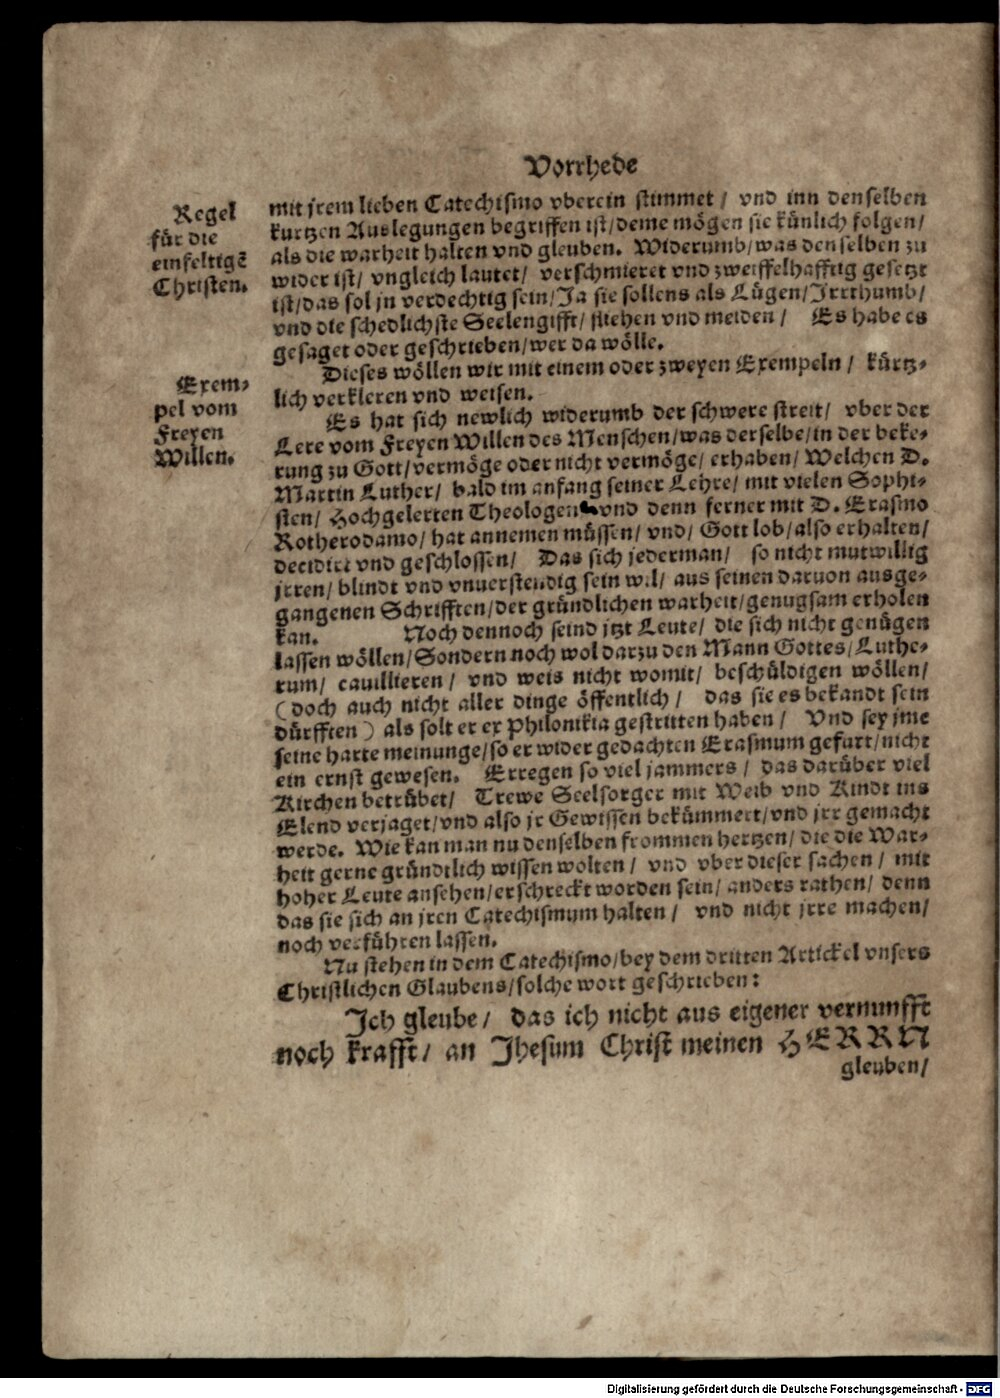 Vorrhede
Regel
für die
einfeltigẽ
Christen.
mit jrem lieben Catechismo vberein stimmet / vnd inn denselben
kurtzen Auslegungen begriffen ist/deme mögen sie künlich folgen/
als die warheit halten vnd gleuben. Widerumb/was denselben zu
wider ist/ vngleich lautet/ verschmieret vnd zweiffelhafftig gesetzt
ist/das sol jn verdechtig sein/Ja sie sollens als Lügen/Jrrthumb/
vnd die schedlichste Seelengifft/ fliehen vnd meiden / Es habe es
gesaget oder geschrieben/wer da wölle.
Exem-
pel vom
Freyen
Willen.
Dieses wöllen wir mit einem oder zweyen Exempeln / kürtz-
lich verkleren vnd weisen.
Es hat sich newlich widerumb der schwere streit/ vber der
Lere vom Freyen Willen des Menschen/was derselbe/in der beke-
rung zu Gott/vermöge oder nicht vermöge/ erhaben/ Welchen D.
Martin Luther/ bald im anfang seiner Lehre/ mit vielen Sophi-
sten/ Hochgelerten Theologen vnd denn ferner mit D. Erasmo
Rotherodamo/ hat annemen müssen/ vnd/ Gott lob/also erhalten/
decidirt vnd geschlossen/ Das sich jederman/ so nicht mutwillig
jrren/ blindt vnd vnuerstendig sein wil/ aus seinen daruon ausge-
gangenen Schrifften/der gründlichen warheit/genugsam erholen
kan. Noch dennoch seind jtzt Leute/ die sich nicht genügen
lassen wöllen/Sondern noch wol darzu den Mann Gottes/Luthe-
rum/ cauillieren / vnd weis nicht womit/ beschüldigen wöllen/
(doch auch nicht aller dinge öffentlich / das sie es bekandt sein
dürfften) als solt er ex Philonikia gestritten haben / Vnd sey jme
seine harte meinunge/so er wider gedachten Erasmum gefurt/nicht
ein ernst gewesen. Erregen so viel jammers / das darüber viel
Kirchen betrübet/ Trewe Seelsorger mit Weib vnd Kindt ins
Elend verjaget/vnd also jr Gewissen bekümmert/vnd jrr gemacht
werde. Wie kan man nu denselben frommen hertzen/ die die War-
heit gerne gründtlich wissen wolten / vnd vber dieser sachen / mit
hoher Leute ansehen/erschreckt worden sein/ anders rathen/ denn
das sie sich an jren Catechismum halten / vnd nicht jrre machen/
noch verführen lassen.
Nu stehen in dem Catechismo/bey dem dritten Artickel vnsers
Christlichen Glaubens/solche wort geschrieben:
Jch gleube/ das ich nicht aus eigener vernunfft
noch krafft/ an Jhesum Christ meinen HERRN
gleuben/
Digitalisierung gefördert durch die Deutsche Forschungsgemeinschaft - DFG